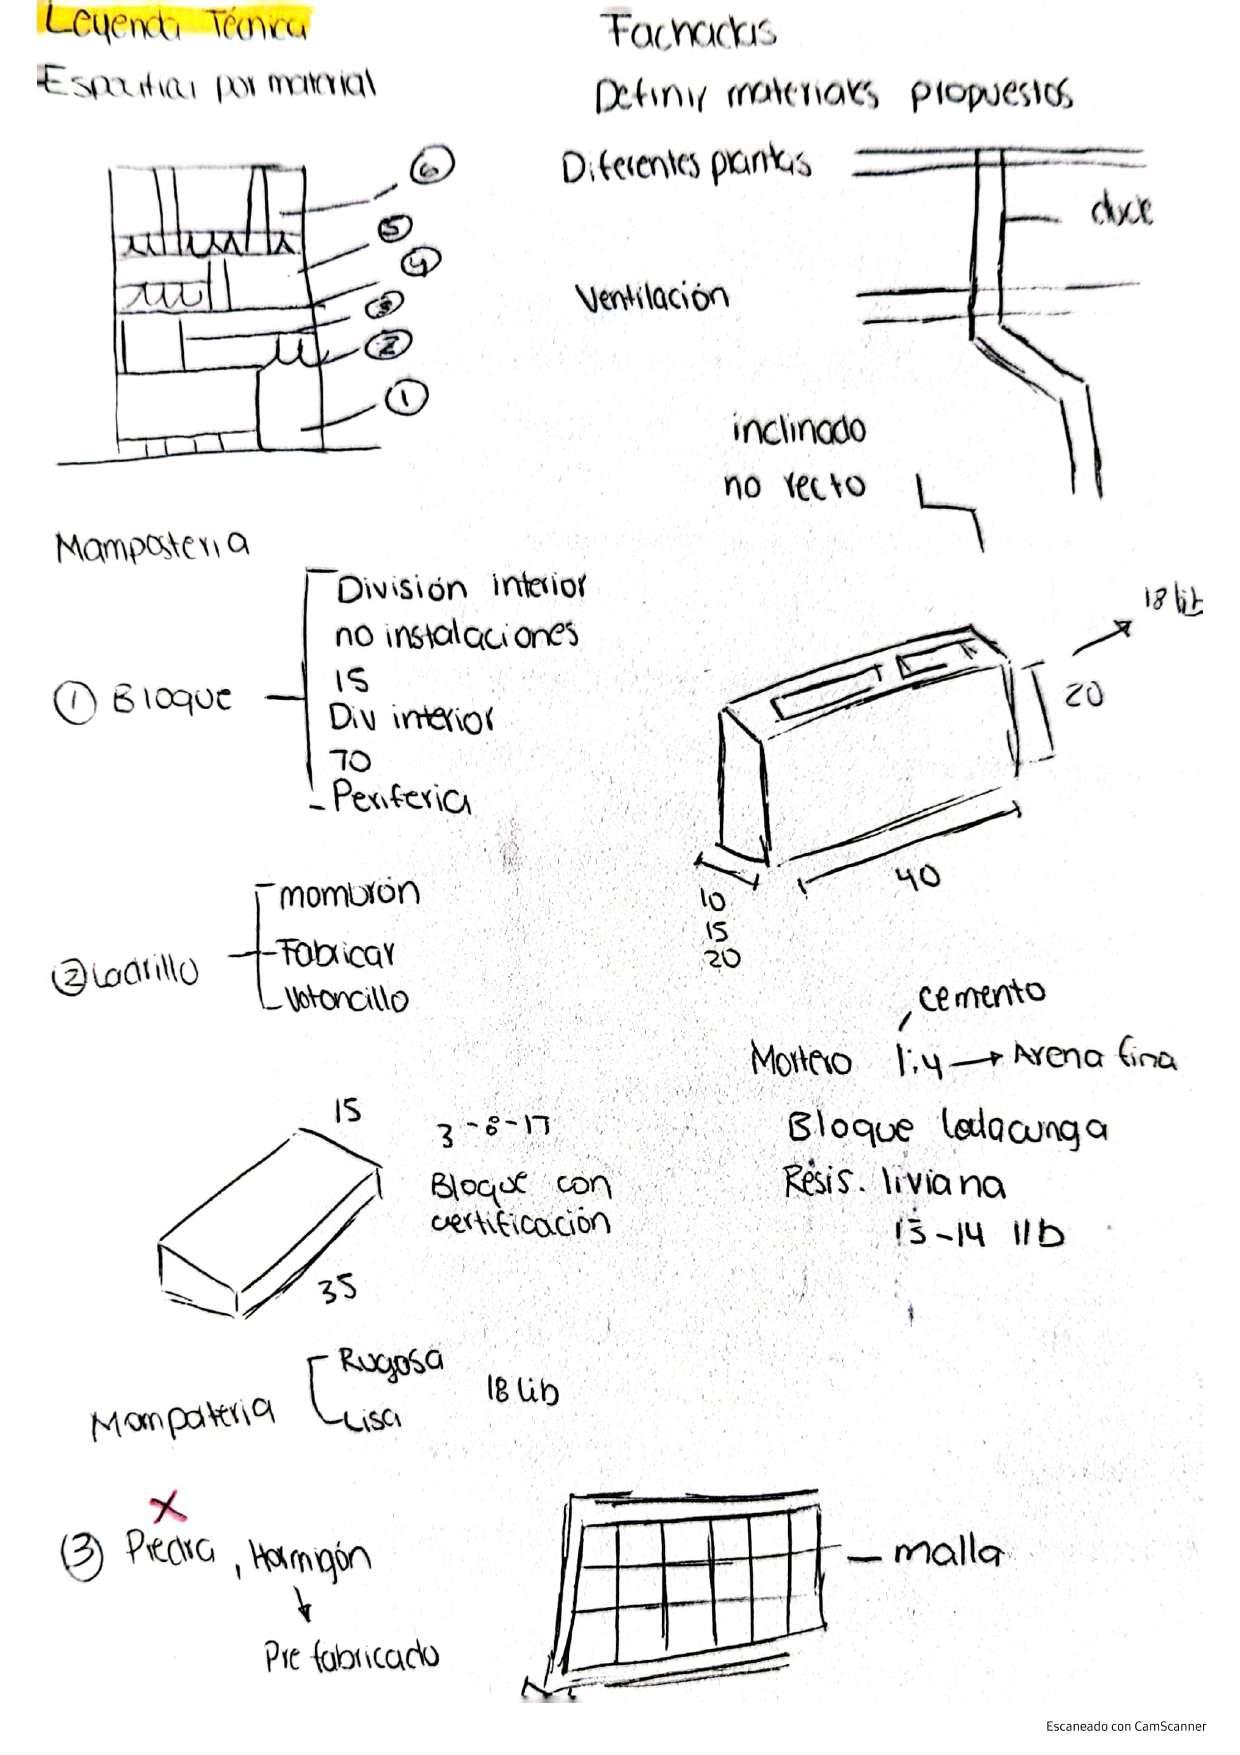 Leyenda Técnica
Especificar por material
6
5
4
3
2
1
Fachadas
Definir materiales propuestos
Diferentes plantas
duct
Ventilación
inclinado
no recto
Mampostería
1 Bloque
División interior
no instalaciones
15
Div interior
70
Periferia
18 lib
20
40
10
15
20
2 Ladrillo
mambrón
Fabricar
cemento
Mortero 1:4 → Arena fina
Bloque Latacunga
Resis. liviana
13-14 lib
15
35
3-8-17
Bloque con
certificación
Mampostería
Rugosa
Lisa
18 lib
X
3 Piedra, Hormigón
Pre fabricado
malla
Escaneado con CamScanner